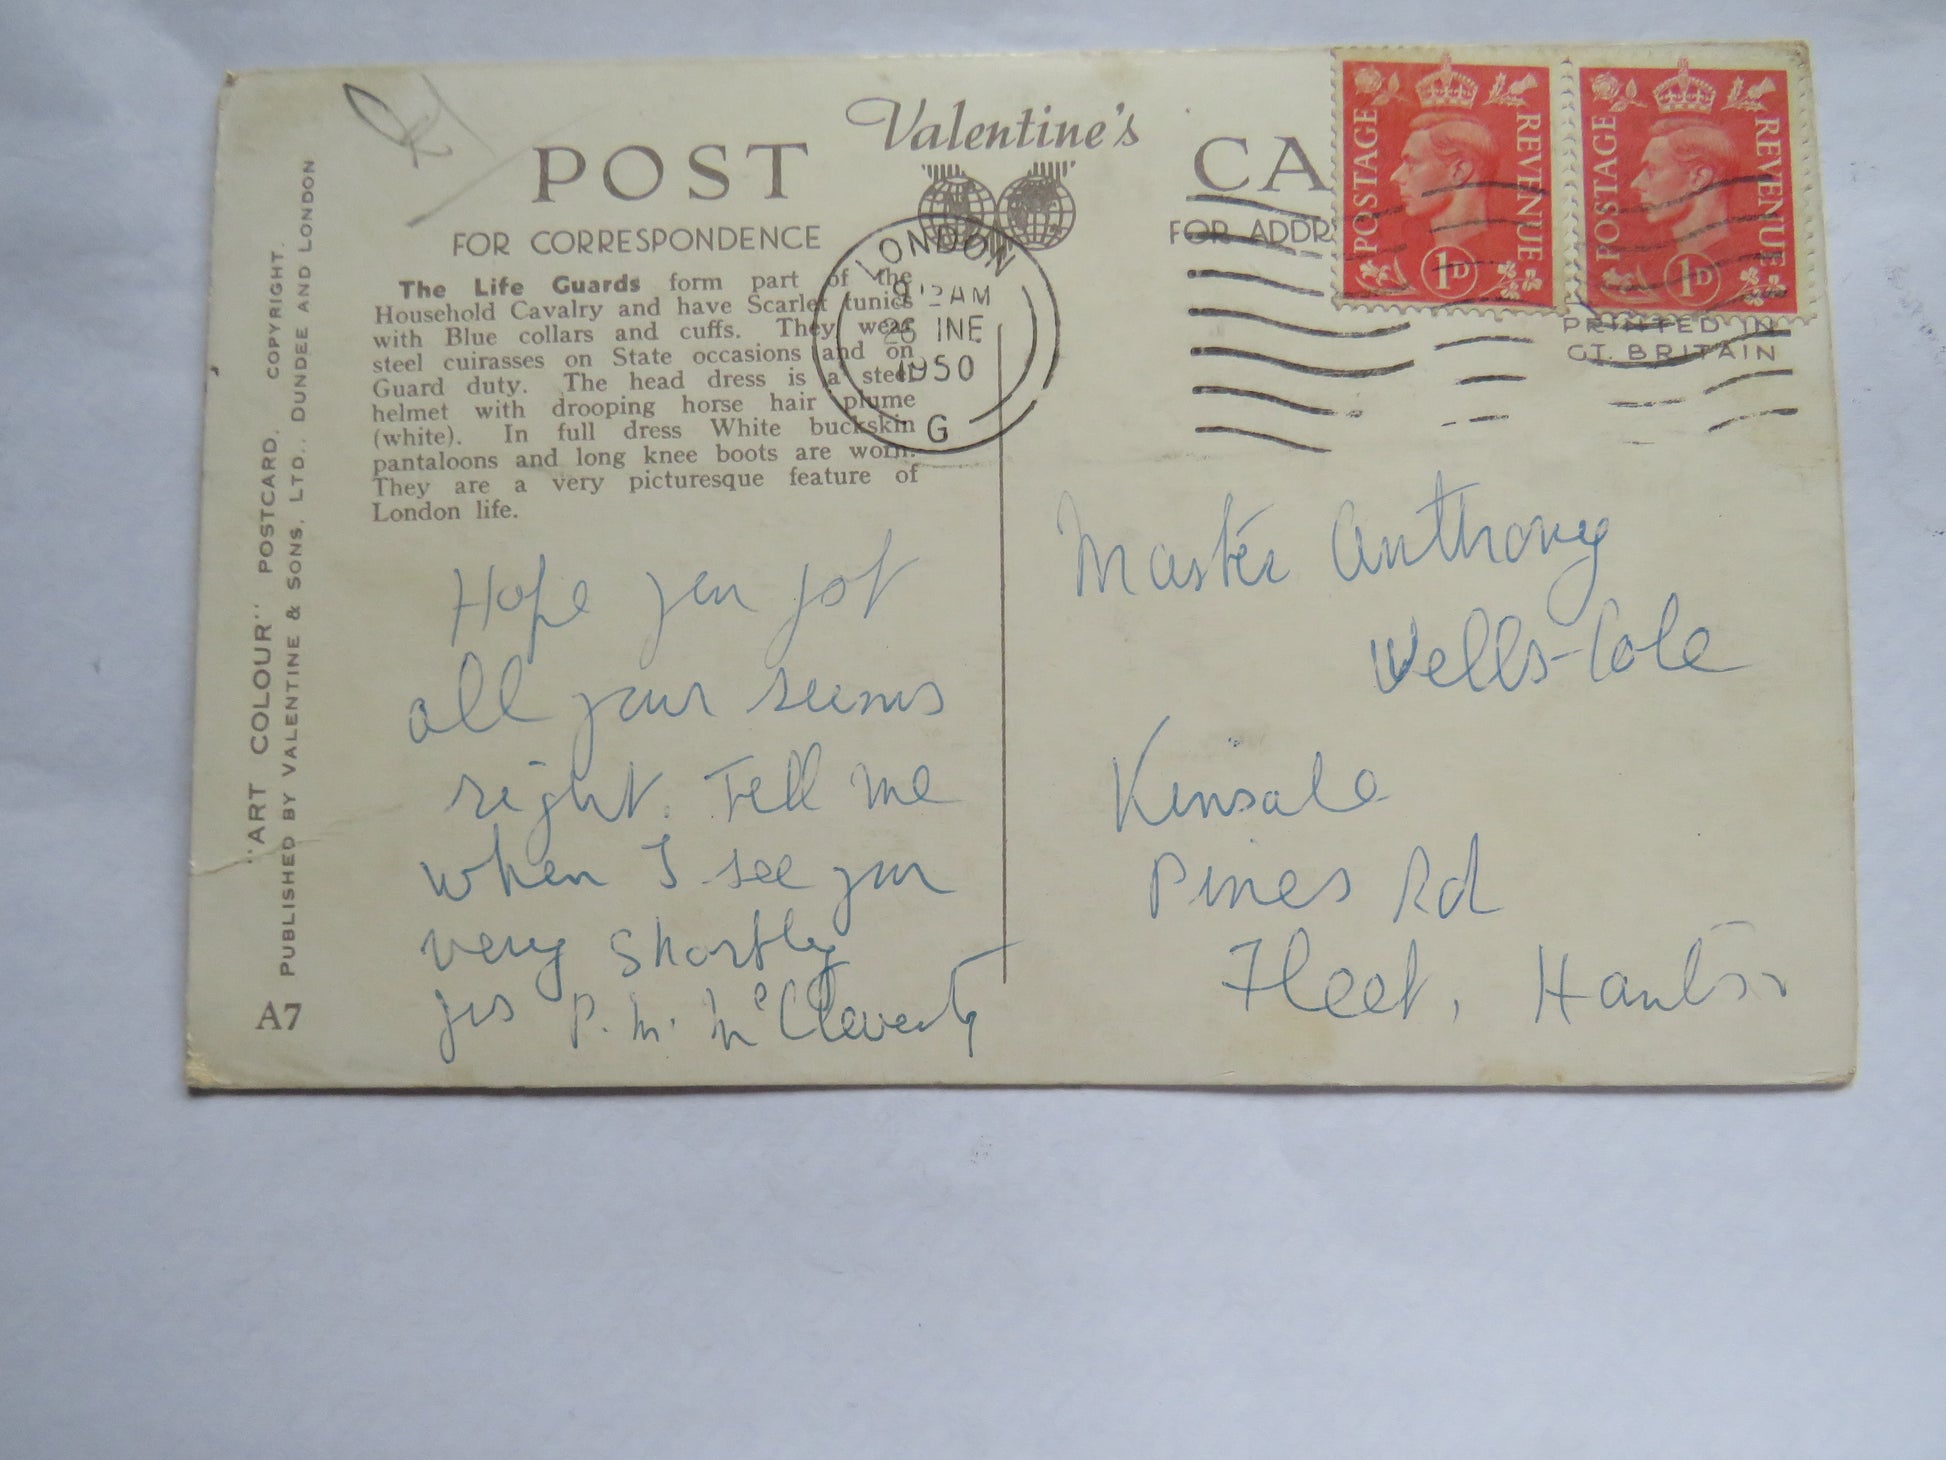 Valentine's
POST CA
FOR CORRESPONDENCE
FOR ADDR
The Life Guards form part of the
Household Cavalry and have Scarlet tunics
with Blue collars and cuffs. They wear
steel cuirasses on State occasions and on
Guard duty. The head dress is a steel
helmet with drooping horse hair plume
(white). In full dress White buckskin
pantaloons and long knee boots are worn.
They are a very picturesque feature of
London life.
LONDON
AM
1950
G
POSTAGE REVENUE
1D
POSTAGE REVENUE
1D
PRINTED IN
GT. BRITAIN
"ART COLOUR" POSTCARD. COPYRIGHT.
PUBLISHED BY VALENTINE & SONS, LTD., DUNDEE AND LONDON
A7
Hope you got
all your
right. Tell me
when I see you
very shortly
yrs P. M. McCleverty
Master Anthony
Wells-Cole
Kinsale
Pines Rd
Fleet, Hants